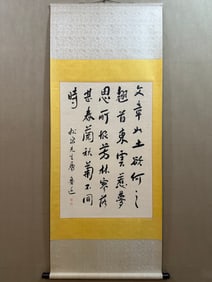 文章如土欲何之
翹首東雲惹夢
思所恨芳林寥落
甚春蘭秋菊不同
時
松泉先生屬 魯迅